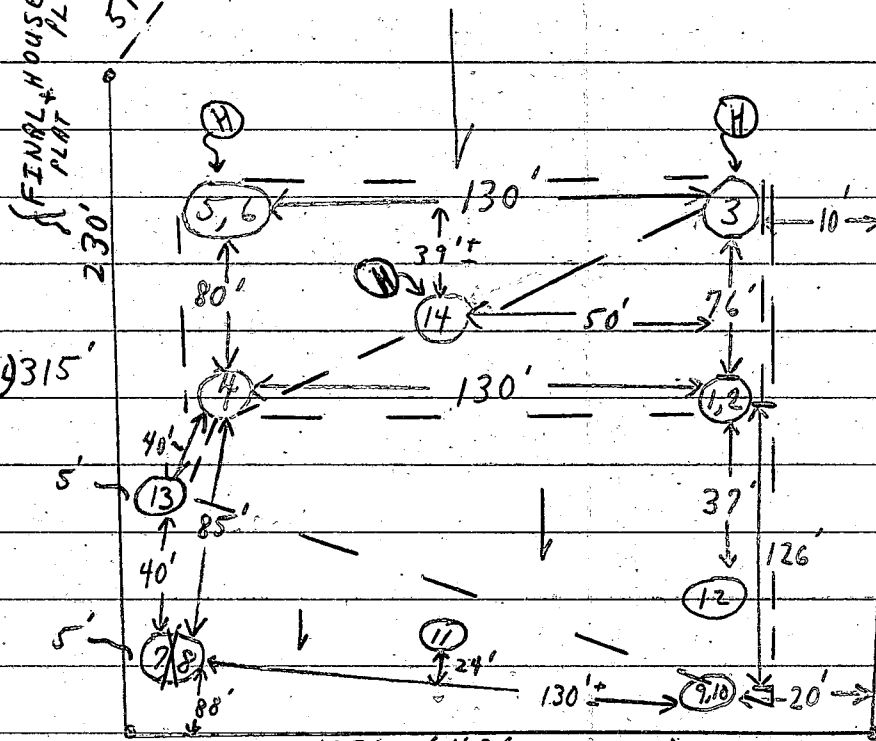 {FINAL + HOUSE
PLAT PL
230'
5'
H
H
5, 6
130'
3
10'
39'±
80'
H
14
50'
76'
315'
4
130'
1,2
40'
5'
13
85'
37'
126'
40'
12
5'
7
8
11
24'
130'+
9,10
20'
88'